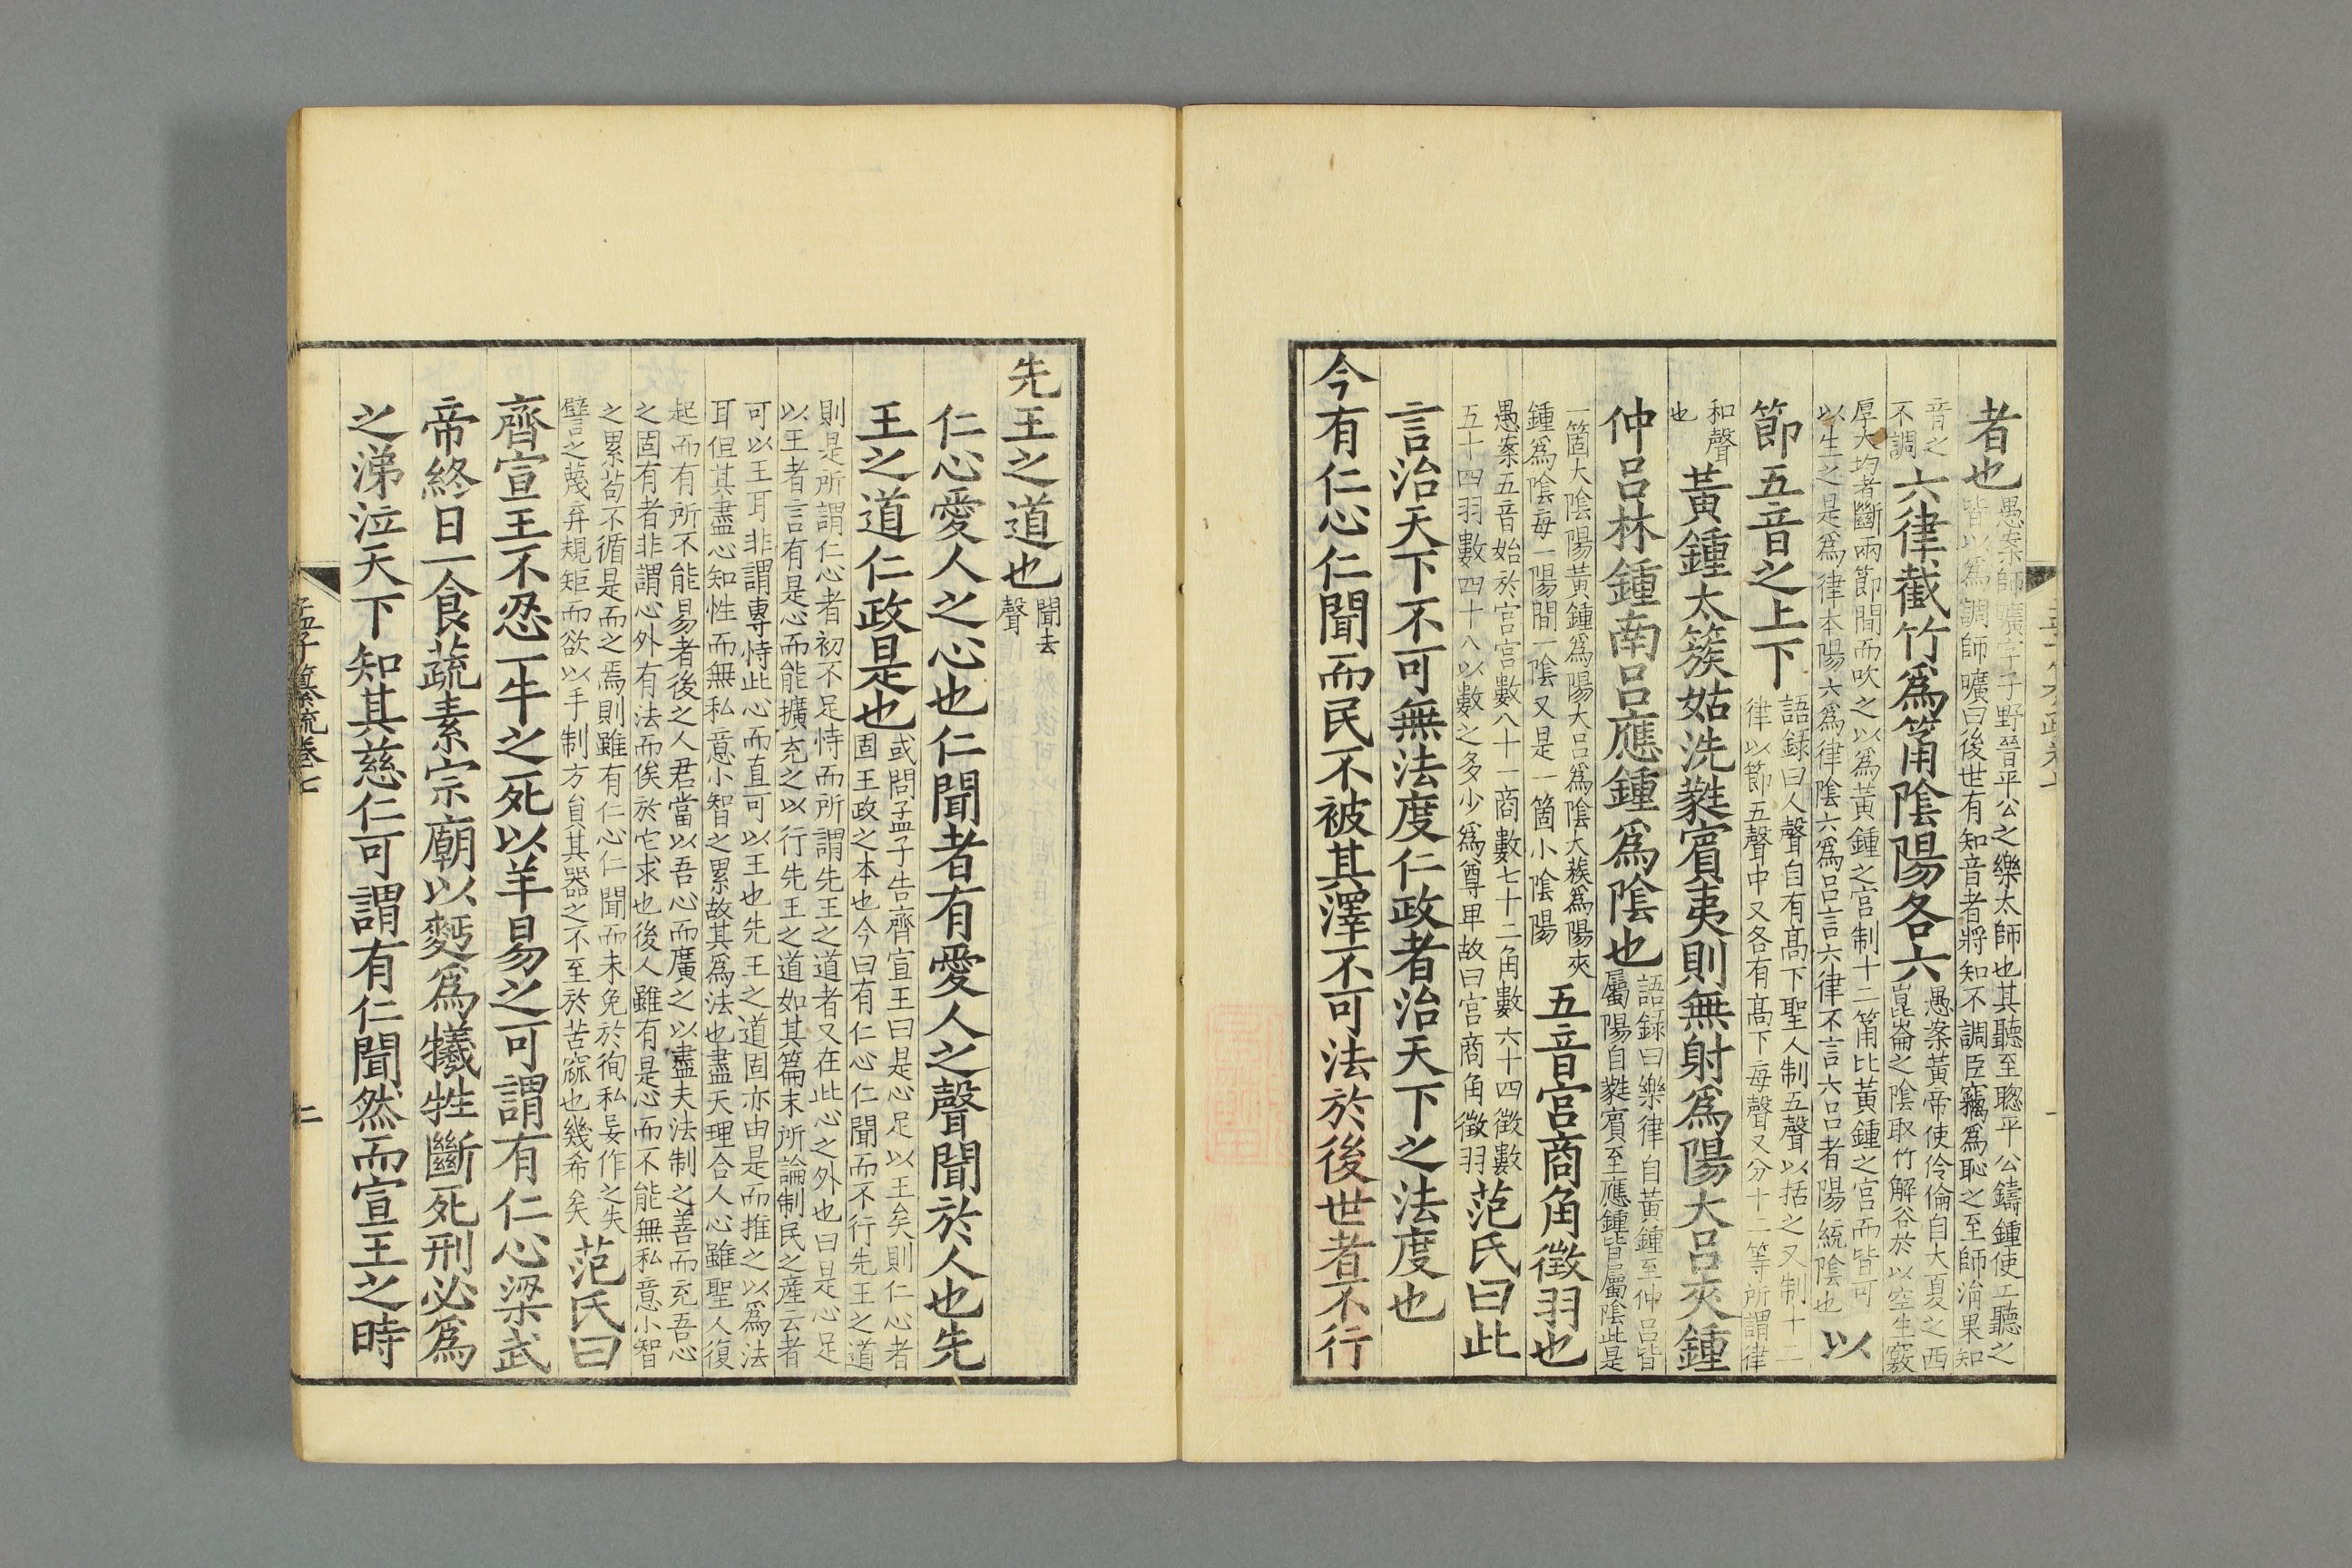 者也愚案師曠字子野晉平公之樂太師也其聽至聦平公鑄鐘使工聽之
皆以爲調師曠曰後世有知音者將知不調臣竊爲恥之至師涓果知
音之
不調六律截竹爲筩陰陽各六愚案黃帝使伶倫自大夏之西
崑崙之陰取竹解谷於以空生竅
厚大均者斷兩節間而吹之以爲黃鍾之宮制十二筩比黃鍾之宮而皆可
以生之是爲律本陽六爲律陰六爲呂言六律不言六呂者陽統陰也以
節五音之上下語錄曰人聲自有高下聖人制五聲以括之又制十二
律以節五聲中又各有高下每聲又分十二等所謂律
和聲
也黃鍾太簇姑洗蕤賓夷則無射爲陽大呂夾鍾
仲呂林鍾南呂應鍾爲陰也語錄曰樂律自黃鍾至仲呂皆
屬陽自蕤賓至應鍾皆屬陰此是
一箇大陰陽黃鍾爲陽大呂爲陰大蔟爲陽夾
鍾爲陰每一陽間一陰又是一箇小陰陽五音宮商角徵羽也
愚案五音始於宮宮數八十一商數七十二角數六十四徵數
五十四羽數四十八以數之多少爲尊卑故曰宮商角徵羽范氏曰此
言治天下不可無法度仁政者治天下之法度也
今有仁心仁聞而民不被其澤不可法於後世者不行
先王之道也聞去
聲
仁心愛人之心也仁聞者有愛人之聲聞於人也先
王之道仁政是也或問孟子告齊宣王曰是心足以王矣則仁心者
固王政之本也今曰有仁心仁聞而不行先王之道
則是所謂仁心者初不足恃而所謂先王之道者又在此心之外也曰是心足
以王者言有是心而能擴充之以行先王之道如其篇末所論制民之產云者
可以王耳非謂專恃此心而直可以王也先王之道固亦由是而推之以爲法
耳但其盡心知性而無私意小智之累故其爲法也盡天理合人心雖聖人復
起而有所不能易者後之人君當以吾心而廣之以盡夫法制之善而充吾心
之固有者非謂心外有法而俟於它求也後人雖有是心而不能無私意小智
之累茍不循是而之焉則雖有仁心仁聞而未免於徇私妄作之失
譬言之蔑弃規矩而欲以手制方負其器之不至於苦窳也幾希矣范氏曰
齊宣王不忍一牛之死以羊易之可謂有仁心梁武
帝終日一食蔬素宗廟以麪爲犧牲斷死刑必爲
之涕泣天下知其慈仁可謂有仁聞然而宣王之時
孟子纂疏卷七
二